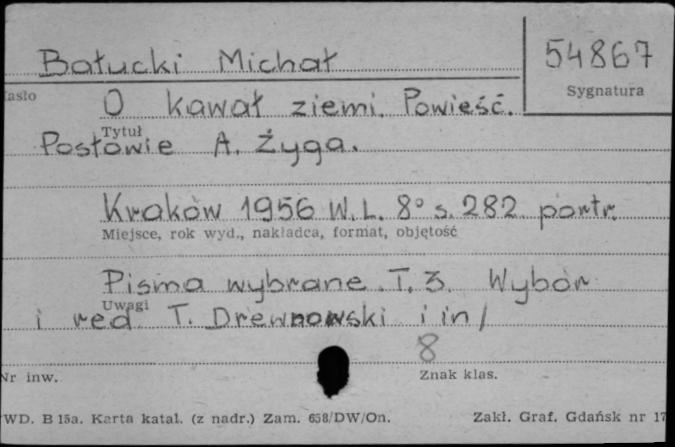 Bałucki Michał
54867
asło
Sygnatura
O kawał ziemi. Powieść.
Tytuł
Posłowie A. Żyga.
Kraków 1956 W.L. 8° s. 282 portr.
Miejsce, rok wyd., nakładca, format, objętość
Pisma wybrane. T. 3. Wybór
Uwagi
i red. T. Drewnowski i in/
8
Nr inw.
Znak klas.
WD. B 15a. Karta katal. (z nadr.) Zam. 658/DW/On.
Zakł. Graf. Gdańsk nr 17